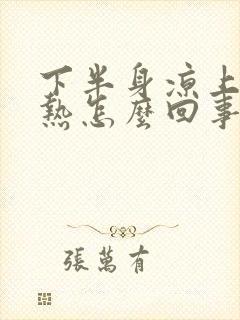 下半身凉上
熱怎麼回事
張萬有